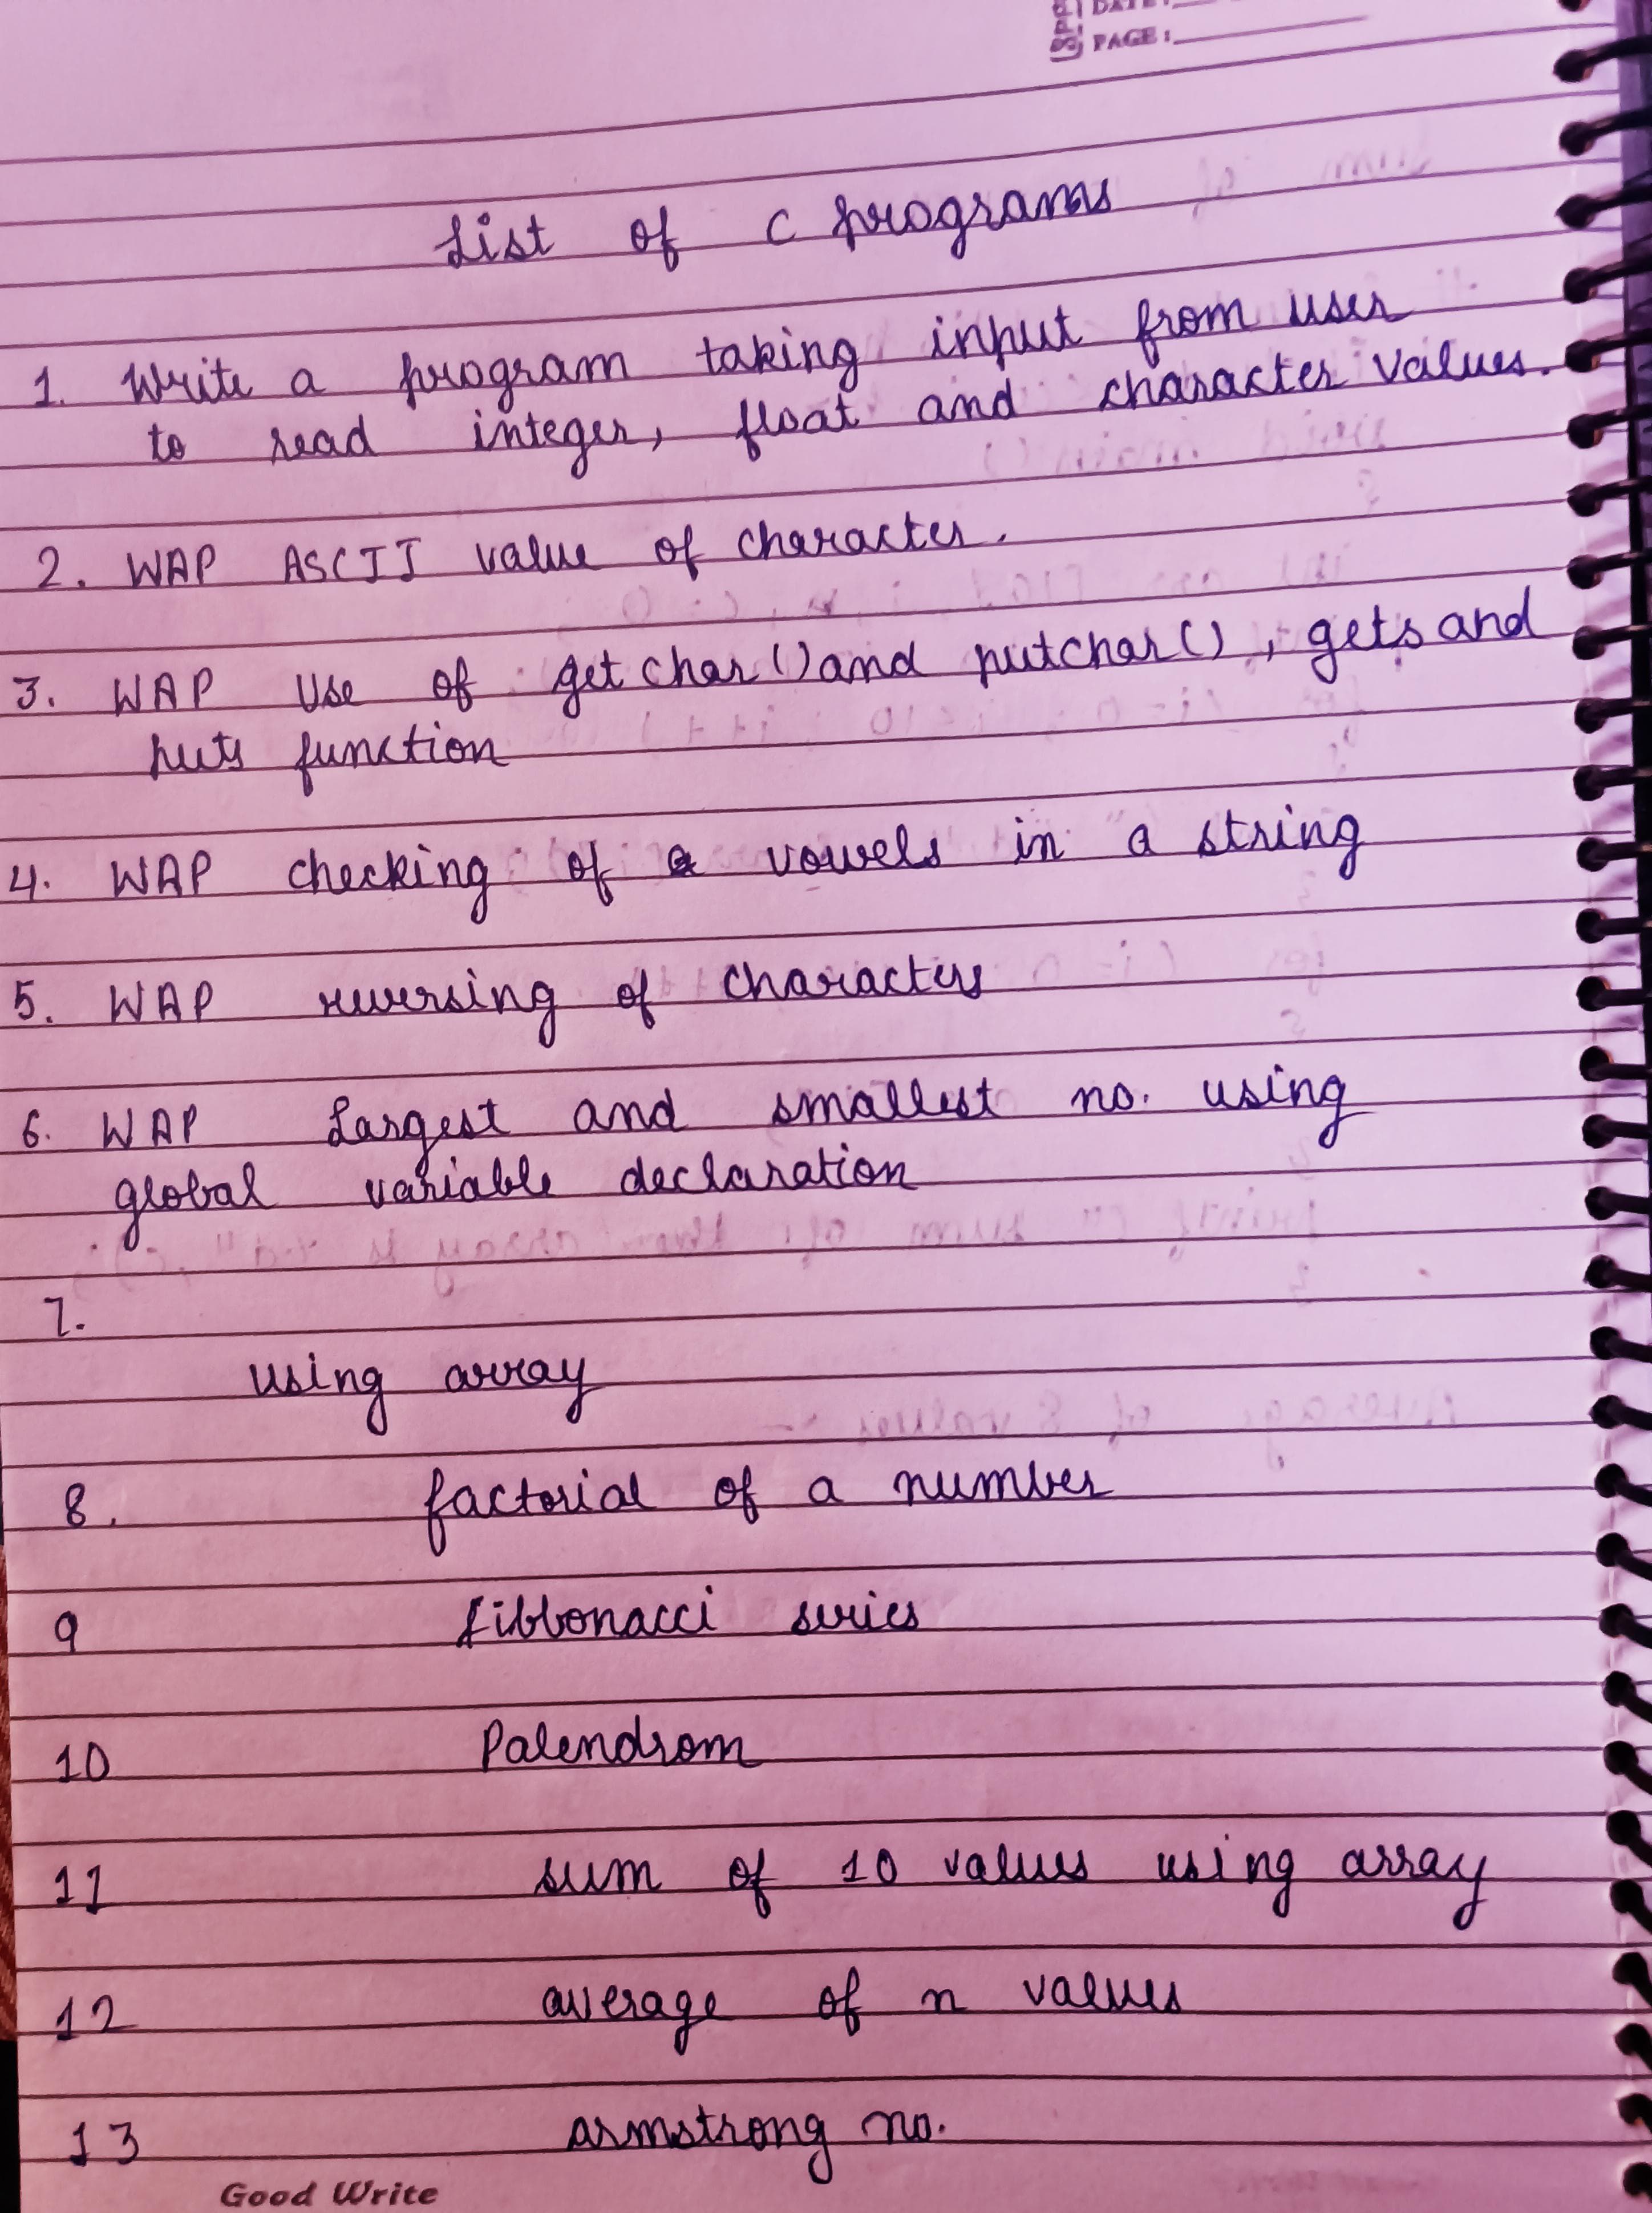 DATE:
PAGE:
List of C programs
1. Write a program taking input from user
to read integer, float and character values.
2. WAP ASCII value of character.
3. WAP Use of getchar() and putchar(), gets and
puts function
4. WAP checking of vowels in a string
5. WAP reversing of characters
6. WAP Largest and smallest no. using
global variable declaration
7.
using array
8. factorial of a number
9 fibbonacci series
10 Palendrom
11 sum of 10 values using array
12 average of n values
13 armstrong no.
Good Write